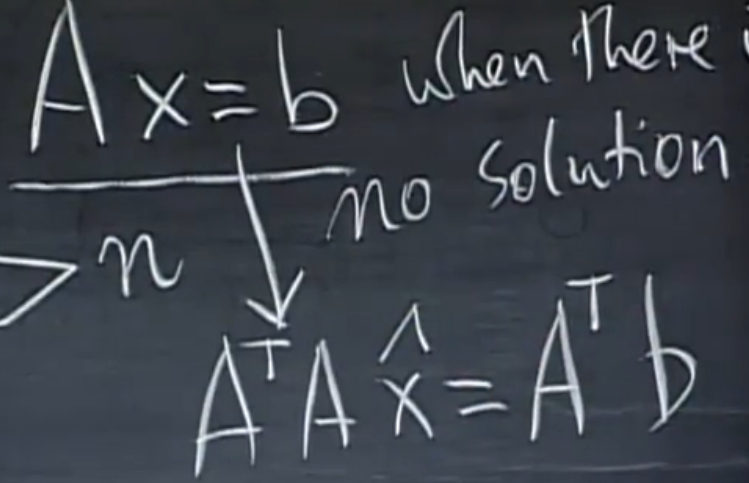 Ax=b when there
no solution
> n
AᵀA x̂ = Aᵀb